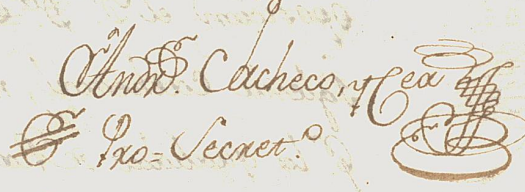 Andr.s Cacheco, y Cea
Pro=Secret.o